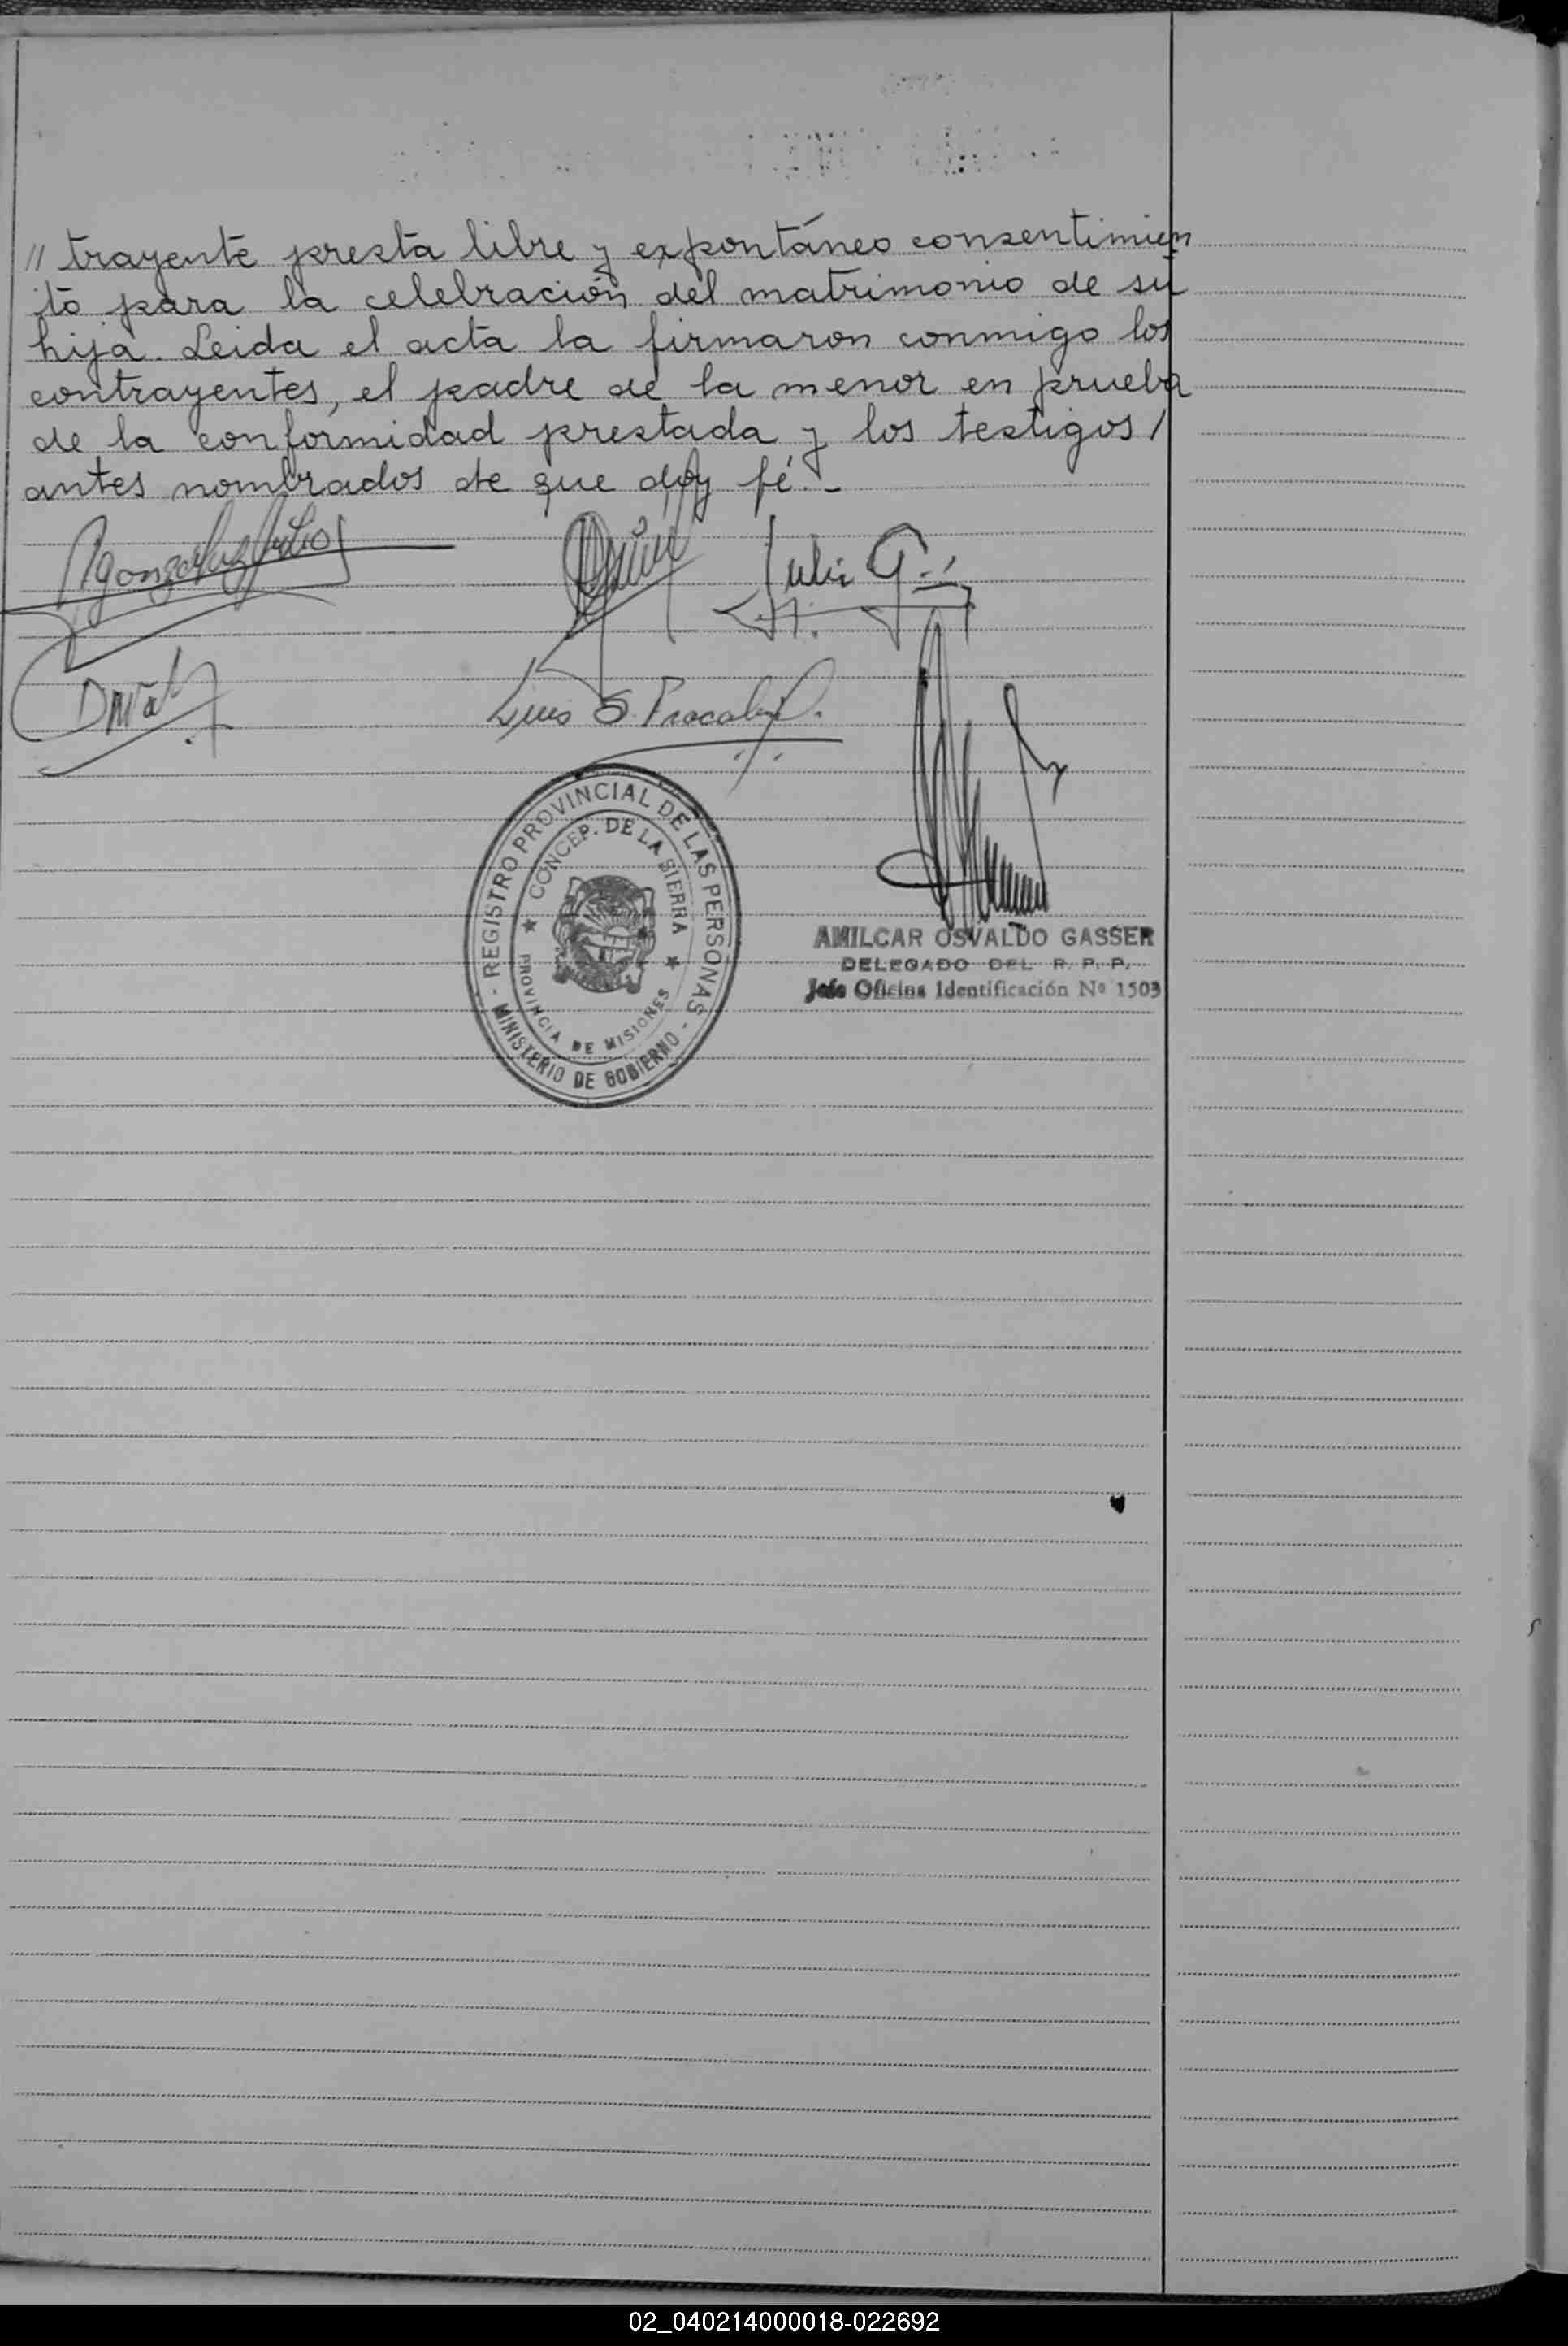 // trayente presta libre y expontáneo consentimien
to para la celebración del matrimonio de su
hija. Leida el acta la firmaron conmigo los
contrayentes, el padre de la menor en prueba
de la conformidad prestada y los testigos /
antes nombrados de que doy fé.-
Julio G.
Luis S.
REGISTRO PROVINCIAL DE LAS PERSONAS
- MINISTERIO DE GOBIERNO -
CONCEP. DE LA SIERRA
PROVINCIA DE MISIONES
AMILCAR OSVALDO GASSER
DELEGADO DEL R. P. P.
Jefe Oficina Identificación Nº 1503
02_040214000018-022692